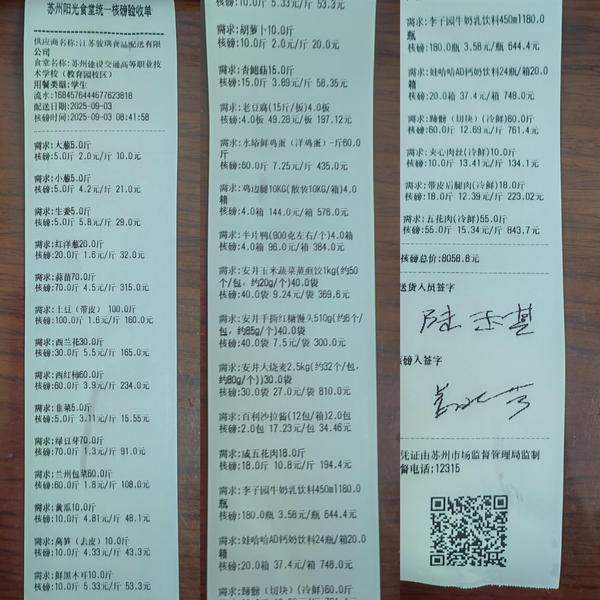 苏州阳光食堂统一核磅验收单
供应商名称:江苏骏瑞食品配送有限
公司
食堂名称:苏州建设交通高等职业技
术学校（教育园校区）
用餐类型:学生
流水:1684576444677623818
配送日期:2025-09-03
核磅时间:2025-09-03 08:41:58
需求:大葱5.0斤
核磅:5.0斤 2.0元/斤 10.0元
需求:小葱5.0斤
核磅:5.0斤 4.2元/斤 21.0元
需求:生姜5.0斤
核磅:5.0斤 5.8元/斤 29.0元
需求:红洋葱20.0斤
核磅:20.0斤 1.6元/斤 32.0元
需求:蒜苗70.0斤
核磅:70.0斤 4.5元/斤 315.0元
需求:土豆（带皮） 100.0斤
核磅:100.0斤 1.6元/斤 160.0元
需求:西兰花30.0斤
核磅:30.0斤 5.5元/斤 165.0元
需求:西红柿60.0斤
核磅:60.0斤 3.9元/斤 234.0元
需求:韭菜5.0斤
核磅:5.0斤 3.11元/斤 15.55元
需求:绿豆芽70.0斤
核磅:70.0斤 1.3元/斤 91.0元
需求:兰州包菜60.0斤
核磅:60.0斤 1.8元/斤 108.0元
需求:黄瓜10.0斤
核磅:10.0斤 4.81元/斤 48.1元
需求:莴笋（去皮）10.0斤
核磅:10.0斤 4.33元/斤 43.3元
需求:鲜黑木耳10.0斤
核磅:10.0斤 5.33元/斤 53.3元
核磅:10.0斤 5.33元/斤 53.3元
需求:胡萝卜10.0斤
核磅:10.0斤 2.0元/斤 20.0元
需求:杏鲍菇15.0斤
核磅:15.0斤 3.89元/斤 58.35元
需求:老豆腐(15斤/板)4.0板
核磅:4.0板 49.28元/板 197.12元
需求:水培鲜鸡蛋（洋鸡蛋）-斤60.0
斤
核磅:60.0斤 7.25元/斤 435.0元
需求:鸡边腿10KG(散装10KG/箱)4.0
箱
核磅:4.0箱 144.0元/箱 576.0元
需求:半片鸭(900克左右/个)4.0箱
核磅:4.0箱 96.0元/箱 384.0元
需求:安井玉米蔬菜蒸煎饺1kg(约50
个/包，约20g/个)40.0袋
核磅:40.0袋 9.24元/袋 369.6元
需求:安井手撕红糖馒头510g(约6个/
包，约85g/个)40.0袋
核磅:40.0袋 7.5元/袋 300.0元
需求:安井大烧麦2.5kg(约32个/包，
约80g/个))30.0袋
核磅:30.0袋 27.0元/袋 810.0元
需求:百利沙拉酱(12包/箱)2.0包
核磅:2.0包 17.23元/包 34.46元
需求:咸五花肉18.0斤
核磅:18.0斤 10.8元/斤 194.4元
需求:李子园牛奶乳饮料450ml180.0
瓶
核磅:180.0瓶 3.58元/瓶 644.4元
需求:娃哈哈AD钙奶饮料24瓶/箱20.0
箱
核磅:20.0箱 37.4元/箱 748.0元
需求:蹄髈（切块）(冷鲜)60.0斤
需求:李子园牛奶乳饮料450ml180.0
瓶
核磅:180.0瓶 3.58元/瓶 644.4元
需求:娃哈哈AD钙奶饮料24瓶/箱20.0
箱
核磅:20.0箱 37.4元/箱 748.0元
需求:蹄髈（切块）(冷鲜)60.0斤
核磅:60.0斤 12.69元/斤 761.4元
需求:夹心肉丝(冷鲜)10.0斤
核磅:10.0斤 13.41元/斤 134.1元
需求:带皮后腿肉(冷鲜)18.0斤
核磅:18.0斤 12.39元/斤 223.02元
需求:五花肉(冷鲜)55.0斤
核磅:55.0斤 15.34元/斤 843.7元
核磅总价:8058.8元
送货人员签字
核磅人签字
凭证由苏州市场监督管理局监制
督电话:12315